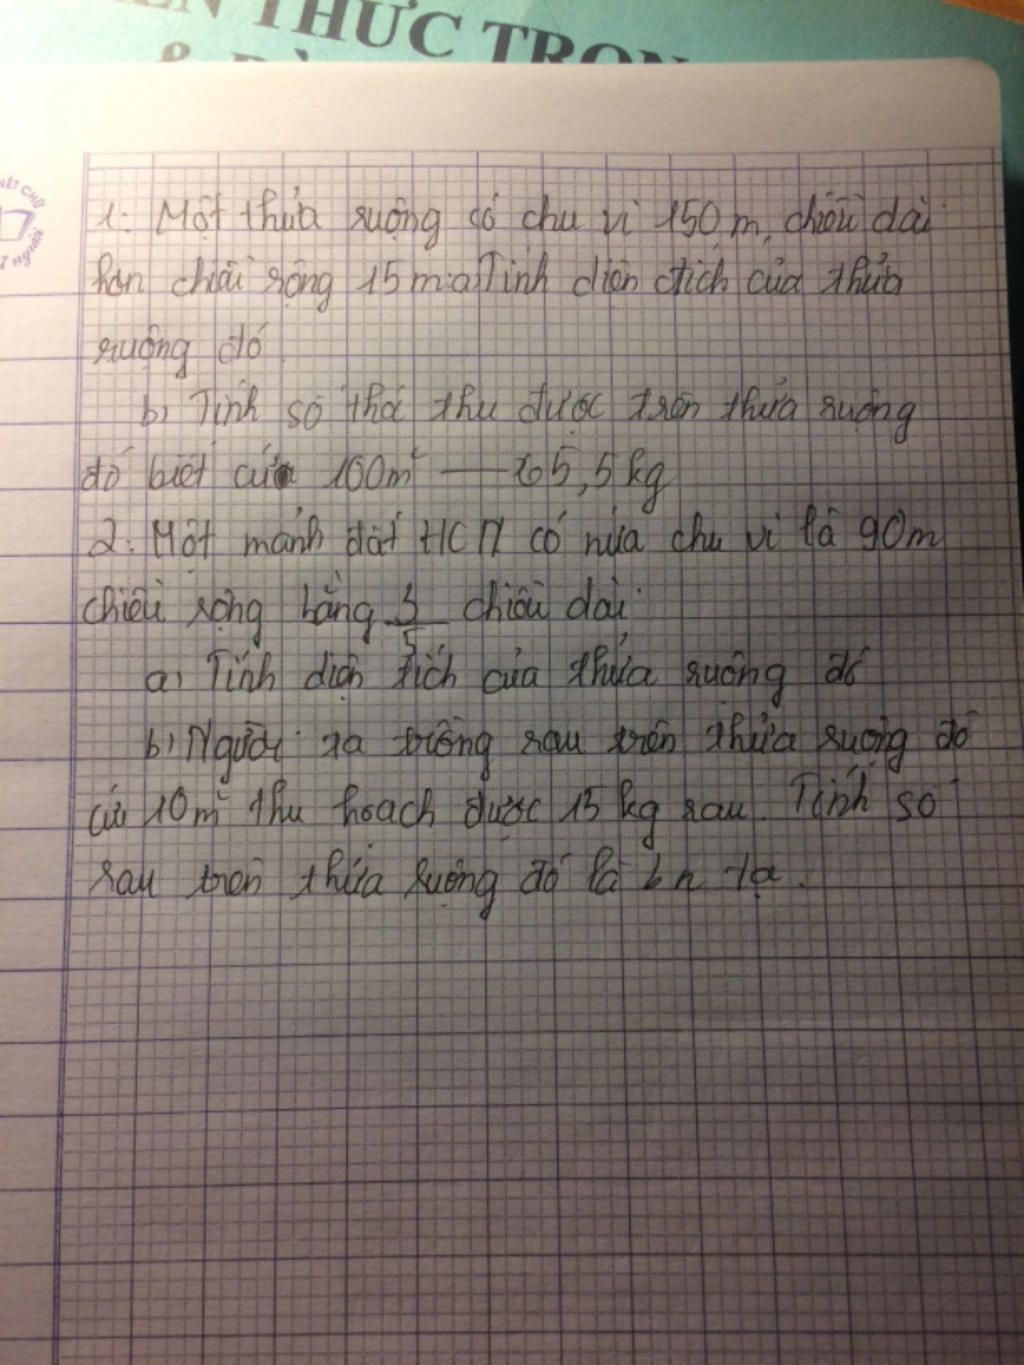 THỨC TRỌN
1. Một thửa ruộng có chu vi 150 m, chiều dài
hơn chiều rộng 15m. a) Tính diện tích của thửa
ruộng đó
b) Tính số thóc thu được trên thửa ruộng
đó biết cứ 100m² — 65,5 kg
2. Một mảnh đất HCN có nửa chu vi là 90m
chiều rộng bằng 3/5 chiều dài.
a) Tính diện tích của thửa ruộng đó
b) Người ta trồng rau trên thửa ruộng đó
cứ 10m² thu hoạch được 15 kg rau. Tính số
rau trên thửa ruộng đó là b n tạ.